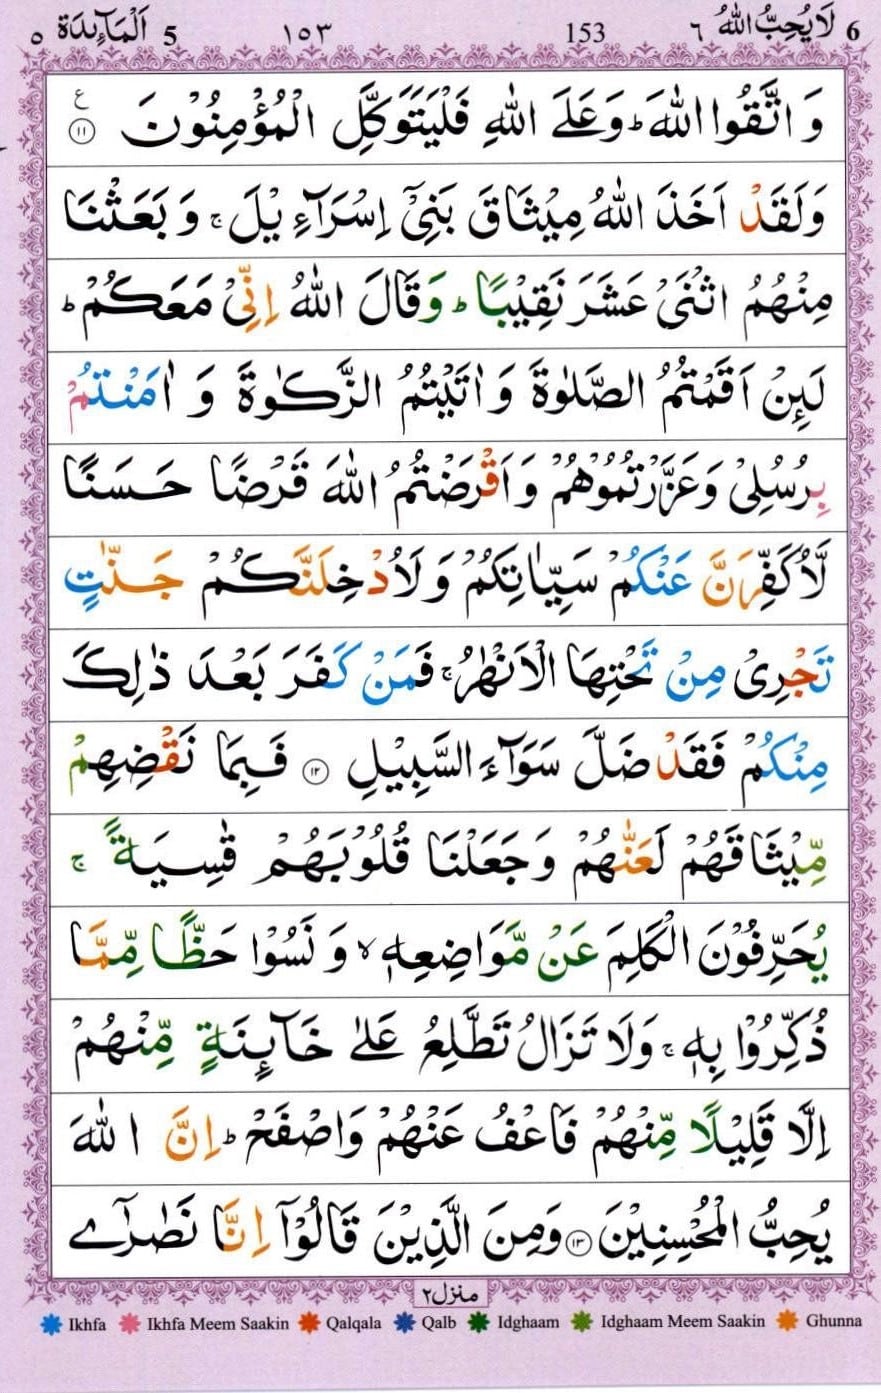 اَلْمَآىِٕدَة ٥ 5 ١٥٣ 153 لَا يُحِبُّ اللّٰهُ ٦ 6
وَ اتَّقُوا اللّٰهَ ؕ وَعَلَى اللّٰهِ فَلْيَتَوَكَّلِ الْمُؤْمِنُوْنَ ۝١١ ع
وَلَقَدْ اَخَذَ اللّٰهُ مِيْثَاقَ بَنِيْۤ اِسْرَآءِيْلَ ۚ وَ بَعَثْنَا
مِنْهُمُ اثْنَيْ عَشَرَ نَقِيْبًا ؕ وَقَالَ اللّٰهُ اِنِّيْ مَعَكُمْ ؕ
لَىِٕنْ اَقَمْتُمُ الصَّلٰوةَ وَاٰتَيْتُمُ الزَّكٰوةَ وَ اٰمَنْتُمْ
بِرُسُلِيْ وَعَزَّرْتُمُوْهُمْ وَاَقْرَضْتُمُ اللّٰهَ قَرْضًا حَسَنًا
لَّاُكَفِّرَنَّ عَنْكُمْ سَيِّاٰتِكُمْ وَلَاُدْخِلَنَّكُمْ جَنّٰتٍ
تَجْرِيْ مِنْ تَحْتِهَا الْاَنْهٰرُ ۚ فَمَنْ كَفَرَ بَعْدَ ذٰلِكَ
مِنْكُمْ فَقَدْ ضَلَّ سَوَآءَ السَّبِيْلِ ۝١٢ فَبِمَا نَقْضِهِمْ
مِّيْثَاقَهُمْ لَعَنّٰهُمْ وَجَعَلْنَا قُلُوْبَهُمْ قٰسِيَةً ۚ
يُحَرِّفُوْنَ الْكَلِمَ عَنْ مَّوَاضِعِهٖ ۙ وَ نَسُوْا حَظًّا مِّمَّا
ذُكِّرُوْا بِهٖ ۚ وَلَا تَزَالُ تَطَّلِعُ عَلٰى خَآىِٕنَةٍ مِّنْهُمْ
اِلَّا قَلِيْلًا مِّنْهُمْ فَاعْفُ عَنْهُمْ وَاصْفَحْ ؕ اِنَّ اللّٰهَ
يُحِبُّ الْمُحْسِنِيْنَ ۝١٣ وَمِنَ الَّذِيْنَ قَالُوْۤا اِنَّا نَصٰرٰٓى
منزل٢
Ikhfa Ikhfa Meem Saakin Qalqala Qalb Idghaam Idghaam Meem Saakin Ghunna